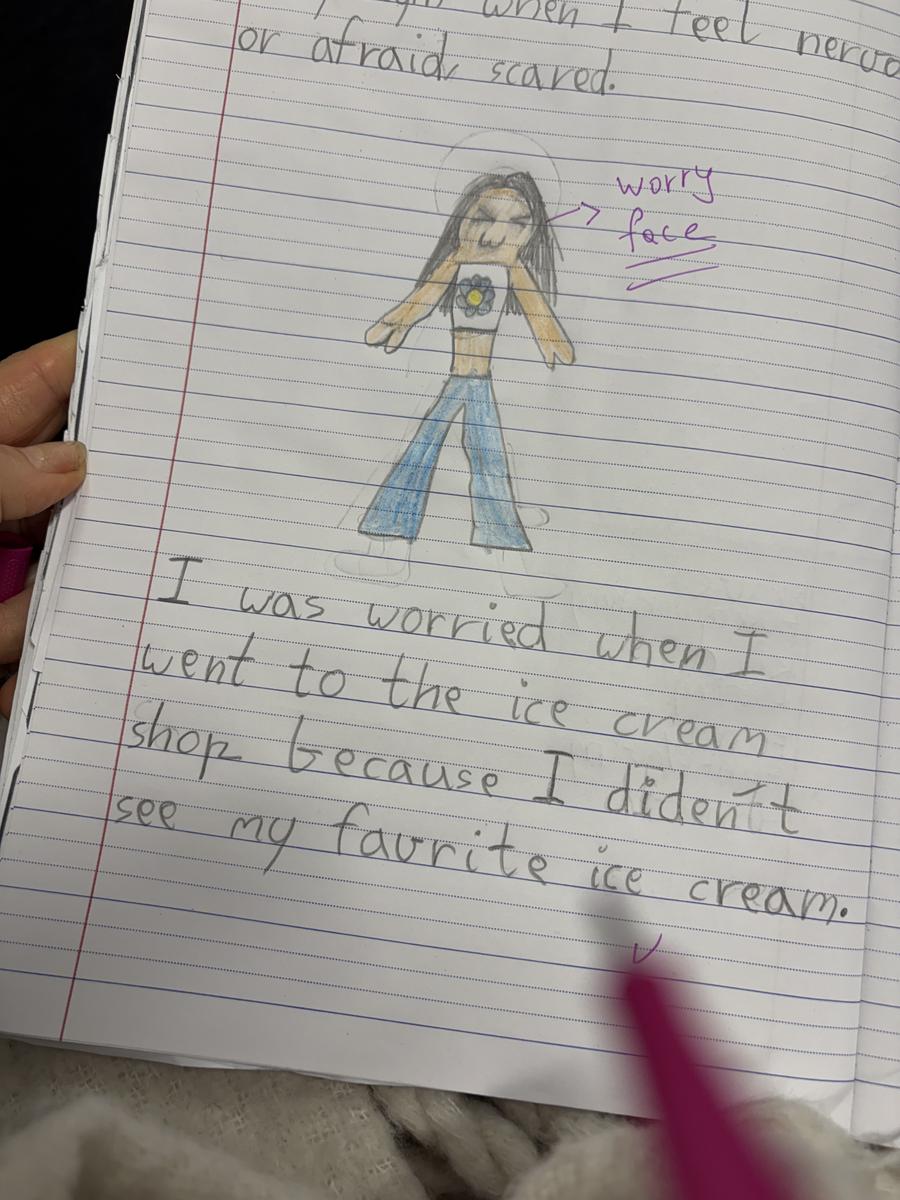 when I feel
or afraid, scared.
worry
face
I was worried when I
went to the ice cream
shop because I diden't
see my favrite ice cream.